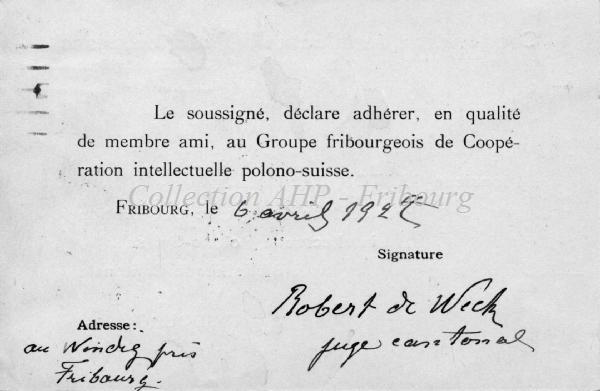 Le soussigné, déclare adhérer, en qualité
de membre ami, au Groupe fribourgeois de Coopé-
ration intellectuelle polono-suisse.
Collection AHP - Fribourg
FRIBOURG, le 6 avril 192
Signature
Robert de Weck
juge cantonal
Adresse:
au Windig près
Fribourg.